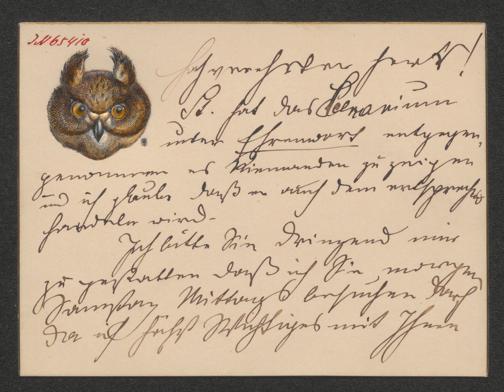 JN 65410
Hochverehrter Herr!
St. hat das Scenarium
unter Ehrenwort entgegen
genommen es Niemanden zu zeigen
und ich glaube daß er auch dem entsprechend
handeln wird.
Ich bitte Sie dringend mir
zu gestatten daß ich Sie morgen
Samstag Mittags besuchen darf
da ich höchst Wichtiges mit Ihnen